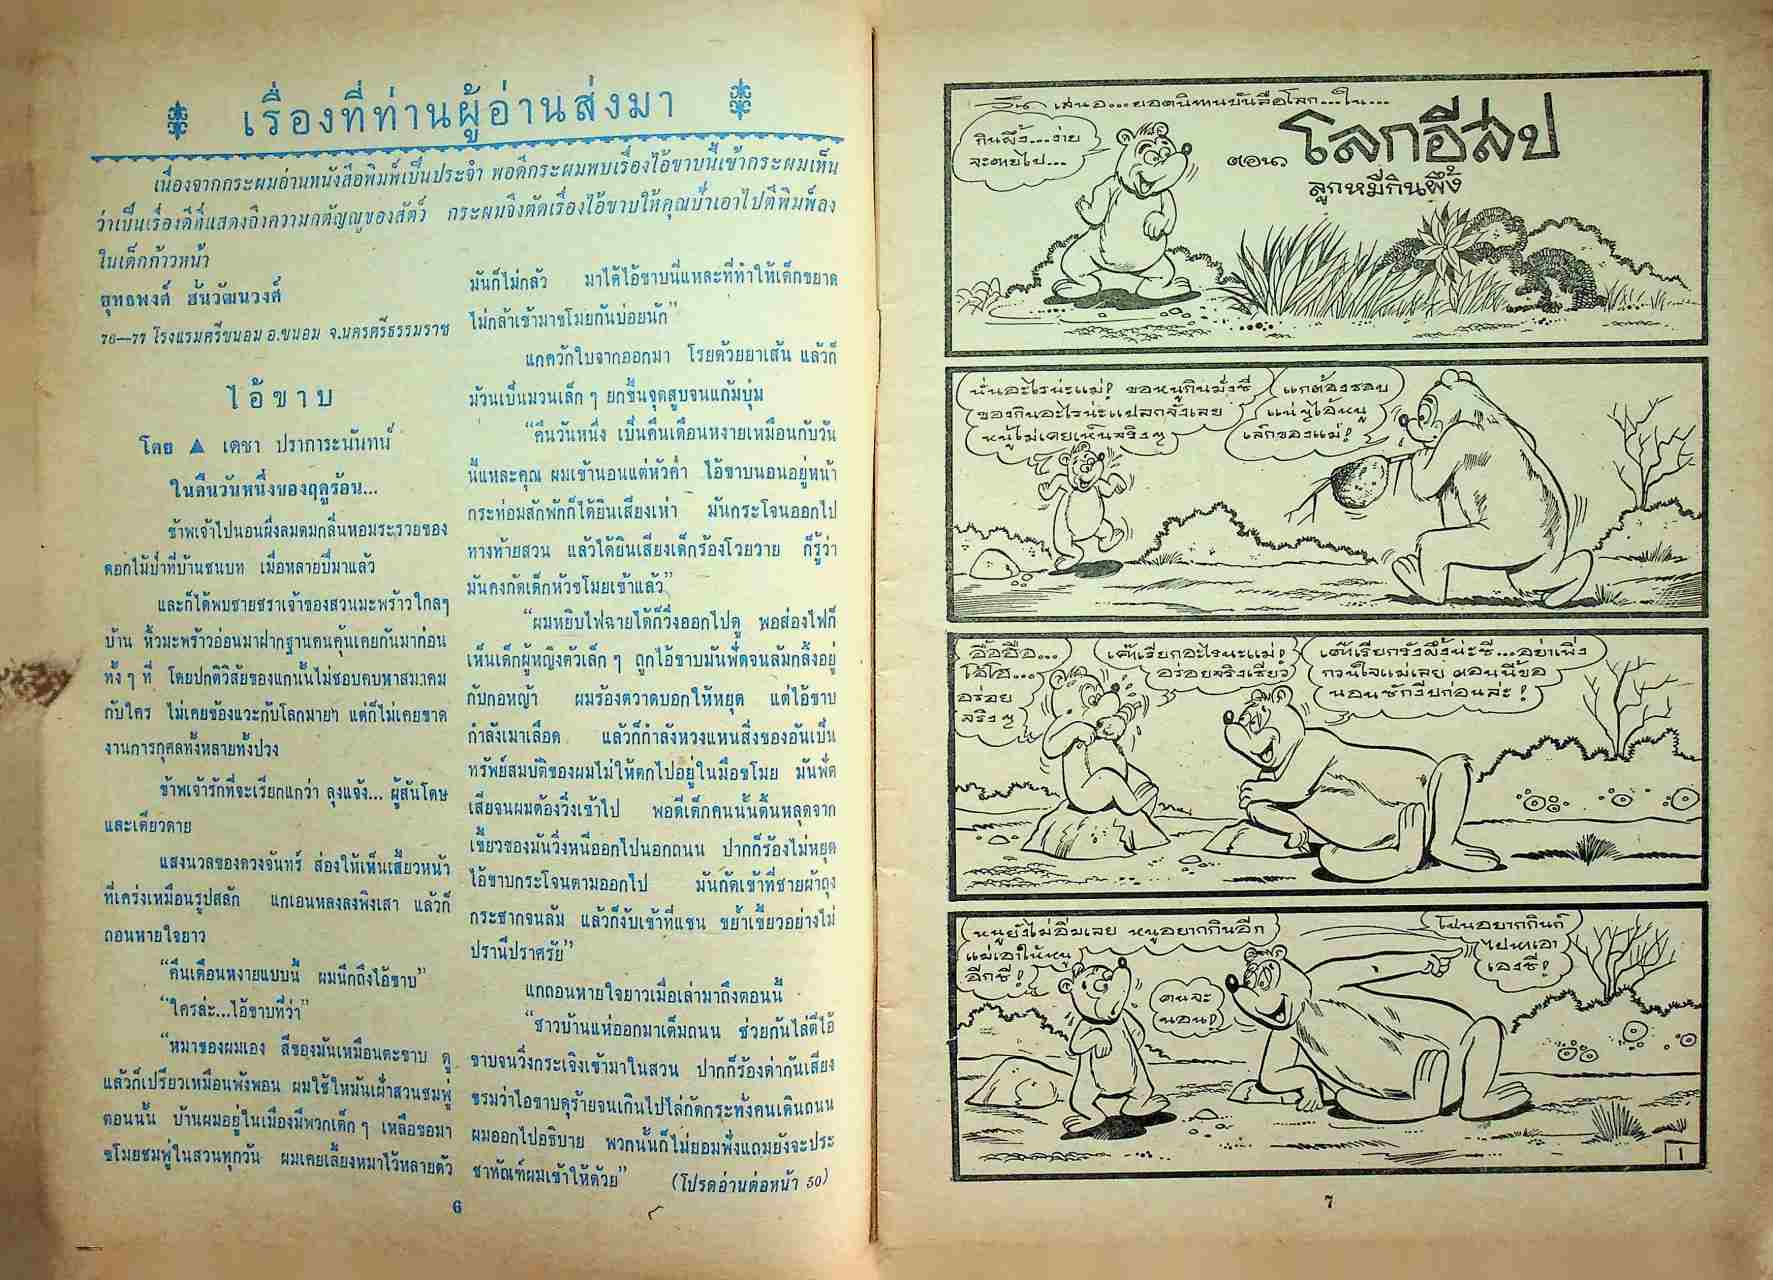 เรื่องที่ท่านผู้อ่านส่งมา
เนื่องจากกระผมอ่านหนังสือพิมพ์เป็นประจำ พอดีกระผมพบเรื่องไอ้ขาบนี้เข้ากระผมเห็น
ว่าเป็นเรื่องดีที่แสดงถึงความกตัญญูของสัตว์ กระผมจึงตัดเรื่องไอ้ขาบให้คุณป้าเอาไปตีพิมพ์ลง
ในเด็กก้าวหน้า
ยุทธพงศ์ ฮันวัฒนวงศ์
76—77 โรงแรมศรีขนอม อ.ขนอม จ.นครศรีธรรมราช
ไอ้ขาบ
โดย ▲ เดชา ปราการะนันทน์
ในคืนวันหนึ่งของฤดูร้อน...
ข้าพเจ้าไปนอนผึ่งลมดมกลิ่นหอมระรวยของ
ดอกไม้ป่าที่บ้านชนบท เมื่อหลายปีมาแล้ว
และก็ได้พบชายชราเจ้าของสวนมะพร้าวใกลๆ
บ้าน หิ้วมะพร้าวอ่อนมาฝากฐานคนคุ้นเคยกันมาก่อน
ทั้ง ๆ ที่ โดยปกติวิสัยของแกนั้นไม่ชอบคบหาสมาคม
กับใคร ไม่เคยข้องแวะกับโลกมายา แต่ก็ไม่เคยขาด
งานการกุศลทั้งหลายทั้งปวง
ข้าพเจ้ารักที่จะเรียกแกว่า ลุงแจ้ง... ผู้สันโดษ
และเดียวดาย
แสงนวลของดวงจันทร์ ส่องให้เห็นเสี้ยวหน้า
ที่เคร่งเหมือนรูปสลัก แกเอนหลงลงพิงเสา แล้วก็
ถอนหายใจยาว
“คืนเดือนหงายแบบนี้ ผมนึกถึงไอ้ขาบ”
“ใครล่ะ...ไอ้ขาบที่ว่า”
“หมาของผมเอง สีของมันเหมือนตะขาบ ดู
แล้วก็เปรียวเหมือนพังพอน ผมใช้ให้มันเฝ้าสวนชมพู่
ตอนนั้น บ้านผมอยู่ในเมืองมีพวกเด็ก ๆ เหลือขอมา
ขโมยชมพู่ในสวนทุกวัน ผมเคยเลี้ยงหมาไว้หลายตัว
มันก็ไม่กลัว มาได้ไอ้ขาบนี่แหละที่ทำให้เด็กขยาด
ไม่กล้าเข้ามาขโมยกันบ่อยนัก”
แกควักใบจากออกมา โรยด้วยยาเส้น แล้วก็
ม้วนเป็นมวนเล็ก ๆ ยกขึ้นจุดสูบจนแก้มบุ๋ม
“คืนวันหนึ่ง เป็นคืนเดือนหงายเหมือนกับวัน
นี้แหละคุณ ผมเข้านอนแต่หัวค่ำ ไอ้ขาบนอนอยู่หน้า
กระท่อมสักพักก็ได้ยินเสียงเห่า มันกระโจนออกไป
ทางท้ายสวน แล้วได้ยินเสียงเด็กร้องโวยวาย ก็รู้ว่า
มันคงกัดเด็กหัวขโมยเข้าแล้ว”
“ผมหยิบไฟฉายได้ก็วิ่งออกไปดู พอส่องไฟก็
เห็นเด็กผู้หญิงตัวเล็ก ๆ ถูกไอ้ขาบมันฟัดจนล้มกลิ้งอยู่
กับกอหญ้า ผมร้องตวาดบอกให้หยุด แต่ไอ้ขาบ
กำลังเมาเลือด แล้วก็กำลังหวงแหนสิ่งของอันเป็น
ทรัพย์สมบัติของผมไม่ให้ตกไปอยู่ในมือขโมย มันฟัด
เสียจนผมต้องวิ่งเข้าไป พอดีเด็กคนนั้นดิ้นหลุดจาก
เขี้ยวของมันวิ่งหนีออกไปนอกถนน ปากก็ร้องไม่หยุด
ไอ้ขาบกระโจนตามออกไป มันกัดเข้าที่ชายผ้าถุง
กระชากจนล้ม แล้วก็งับเข้าที่แขน ขย้ำเขี้ยวอย่างไม่
ปรานีปราศรัย”
แกถอนหายใจยาวเมื่อเล่ามาถึงตอนนี้
“ชาวบ้านแห่ออกมาเต็มถนน ช่วยกันไล่ตีไอ้
ขาบจนวิ่งกระเจิงเข้ามาในสวน ปากก็ร้องด่ากันเสียง
ขรมว่าไอขาบดุร้ายจนเกินไปไล่กัดกระทั่งคนเดินถนน
ผมออกไปอธิบาย พวกนั้นก็ไม่ยอมฟังแถมยังจะประ
ชาทัณฑ์ผมเข้าให้ด้วย” (โปรดอ่านต่อหน้า 50)
6
เสนอ...ยอดนิทานบันลือโลก...ใน...
โลกอีสป
ตอน
ลูกหมีกินผึ้ง
กินผึ้ง...ง่าย
จะตายไป...
นั่นอะไรน่ะแม่! ขอหนูกินมั่งซี่
ของกินอะไรน่ะแปลกจังเลย
หนูไม่เคยเห็นจริงๆ
แกต้องชอบ
แน่ๆไอ้หนู
เล็กของแม่!
อื้อฮือ...
โอ้โฮ...
อร่อย
จริงๆ
เค๊าเรียกอะไรนะแม่!
อร่อยจริงเชียว
เค๊าเรียกรังผึ้งน่ะซี...อย่าเพิ่ง
กวนใจแม่เลย ตอนนี้ขอ
นอนซักงีบก่อนล่ะ!
หนูยังไม่อิ่มเลย หนูอยากกินอีก
แม่เอาให้หนู
อีกซี!
คนจะ
นอน!
โน่นอยากกินก็
ไปหาเอา
เองซี!
1
7